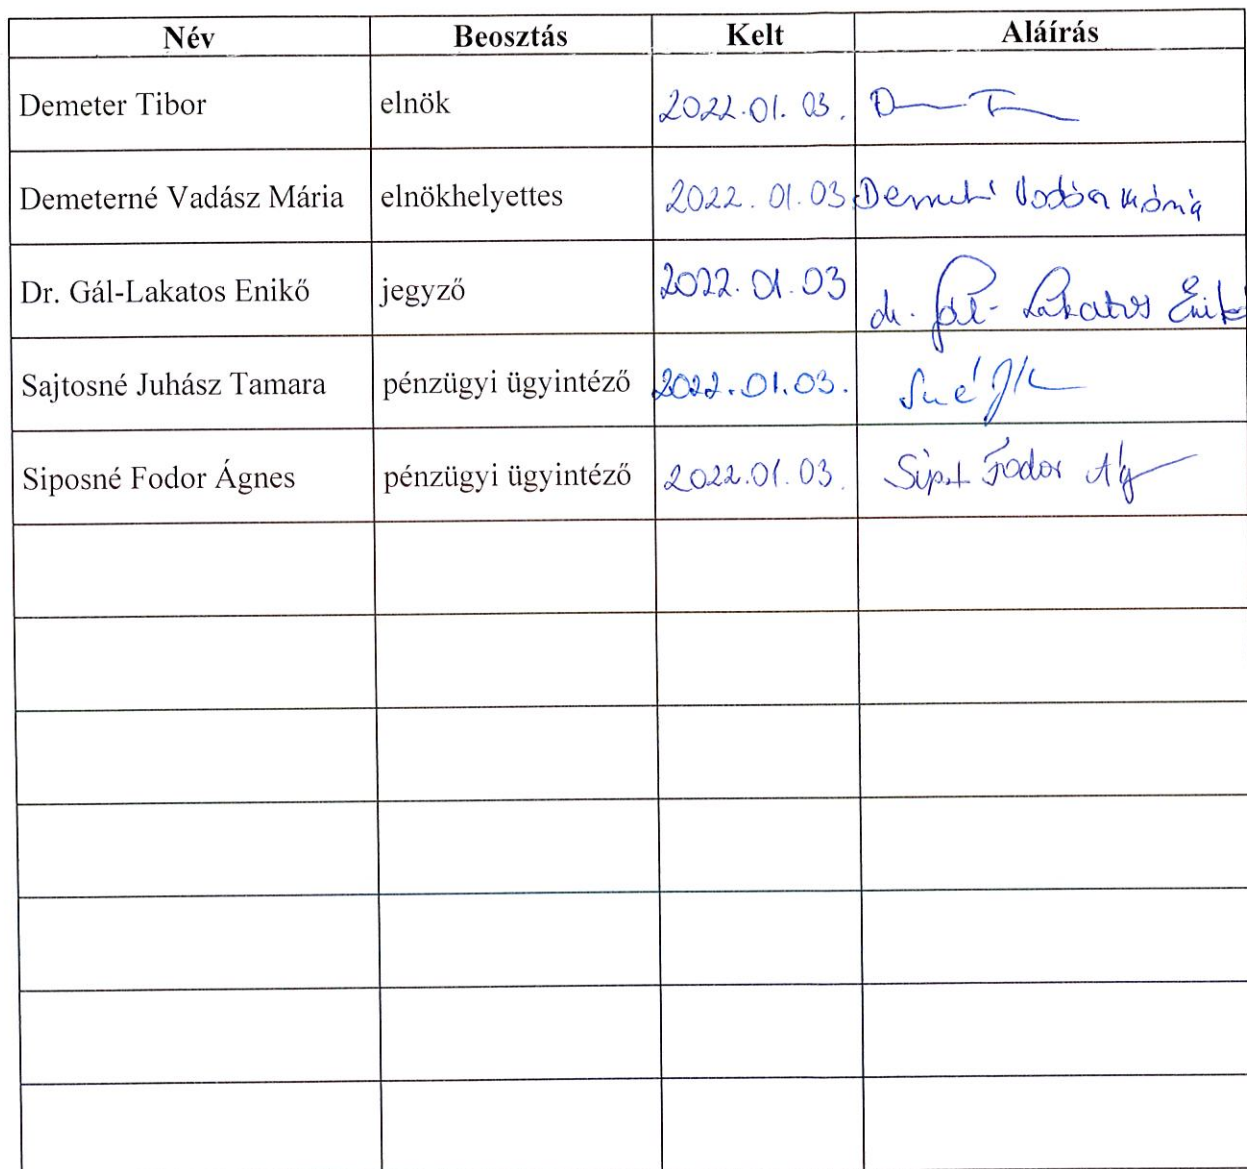 Név Beosztás Kelt Aláírás
Demeter Tibor elnök 2022.01.03.
Demeterné Vadász Mária elnökhelyettes 2022.01.03
Dr. Gál-Lakatos Enikő jegyző 2022.01.03 dr. Gál-Lakatos Enikő
Sajtosné Juhász Tamara pénzügyi ügyintéző 2022.01.03.
Siposné Fodor Ágnes pénzügyi ügyintéző 2022.01.03. Fodor